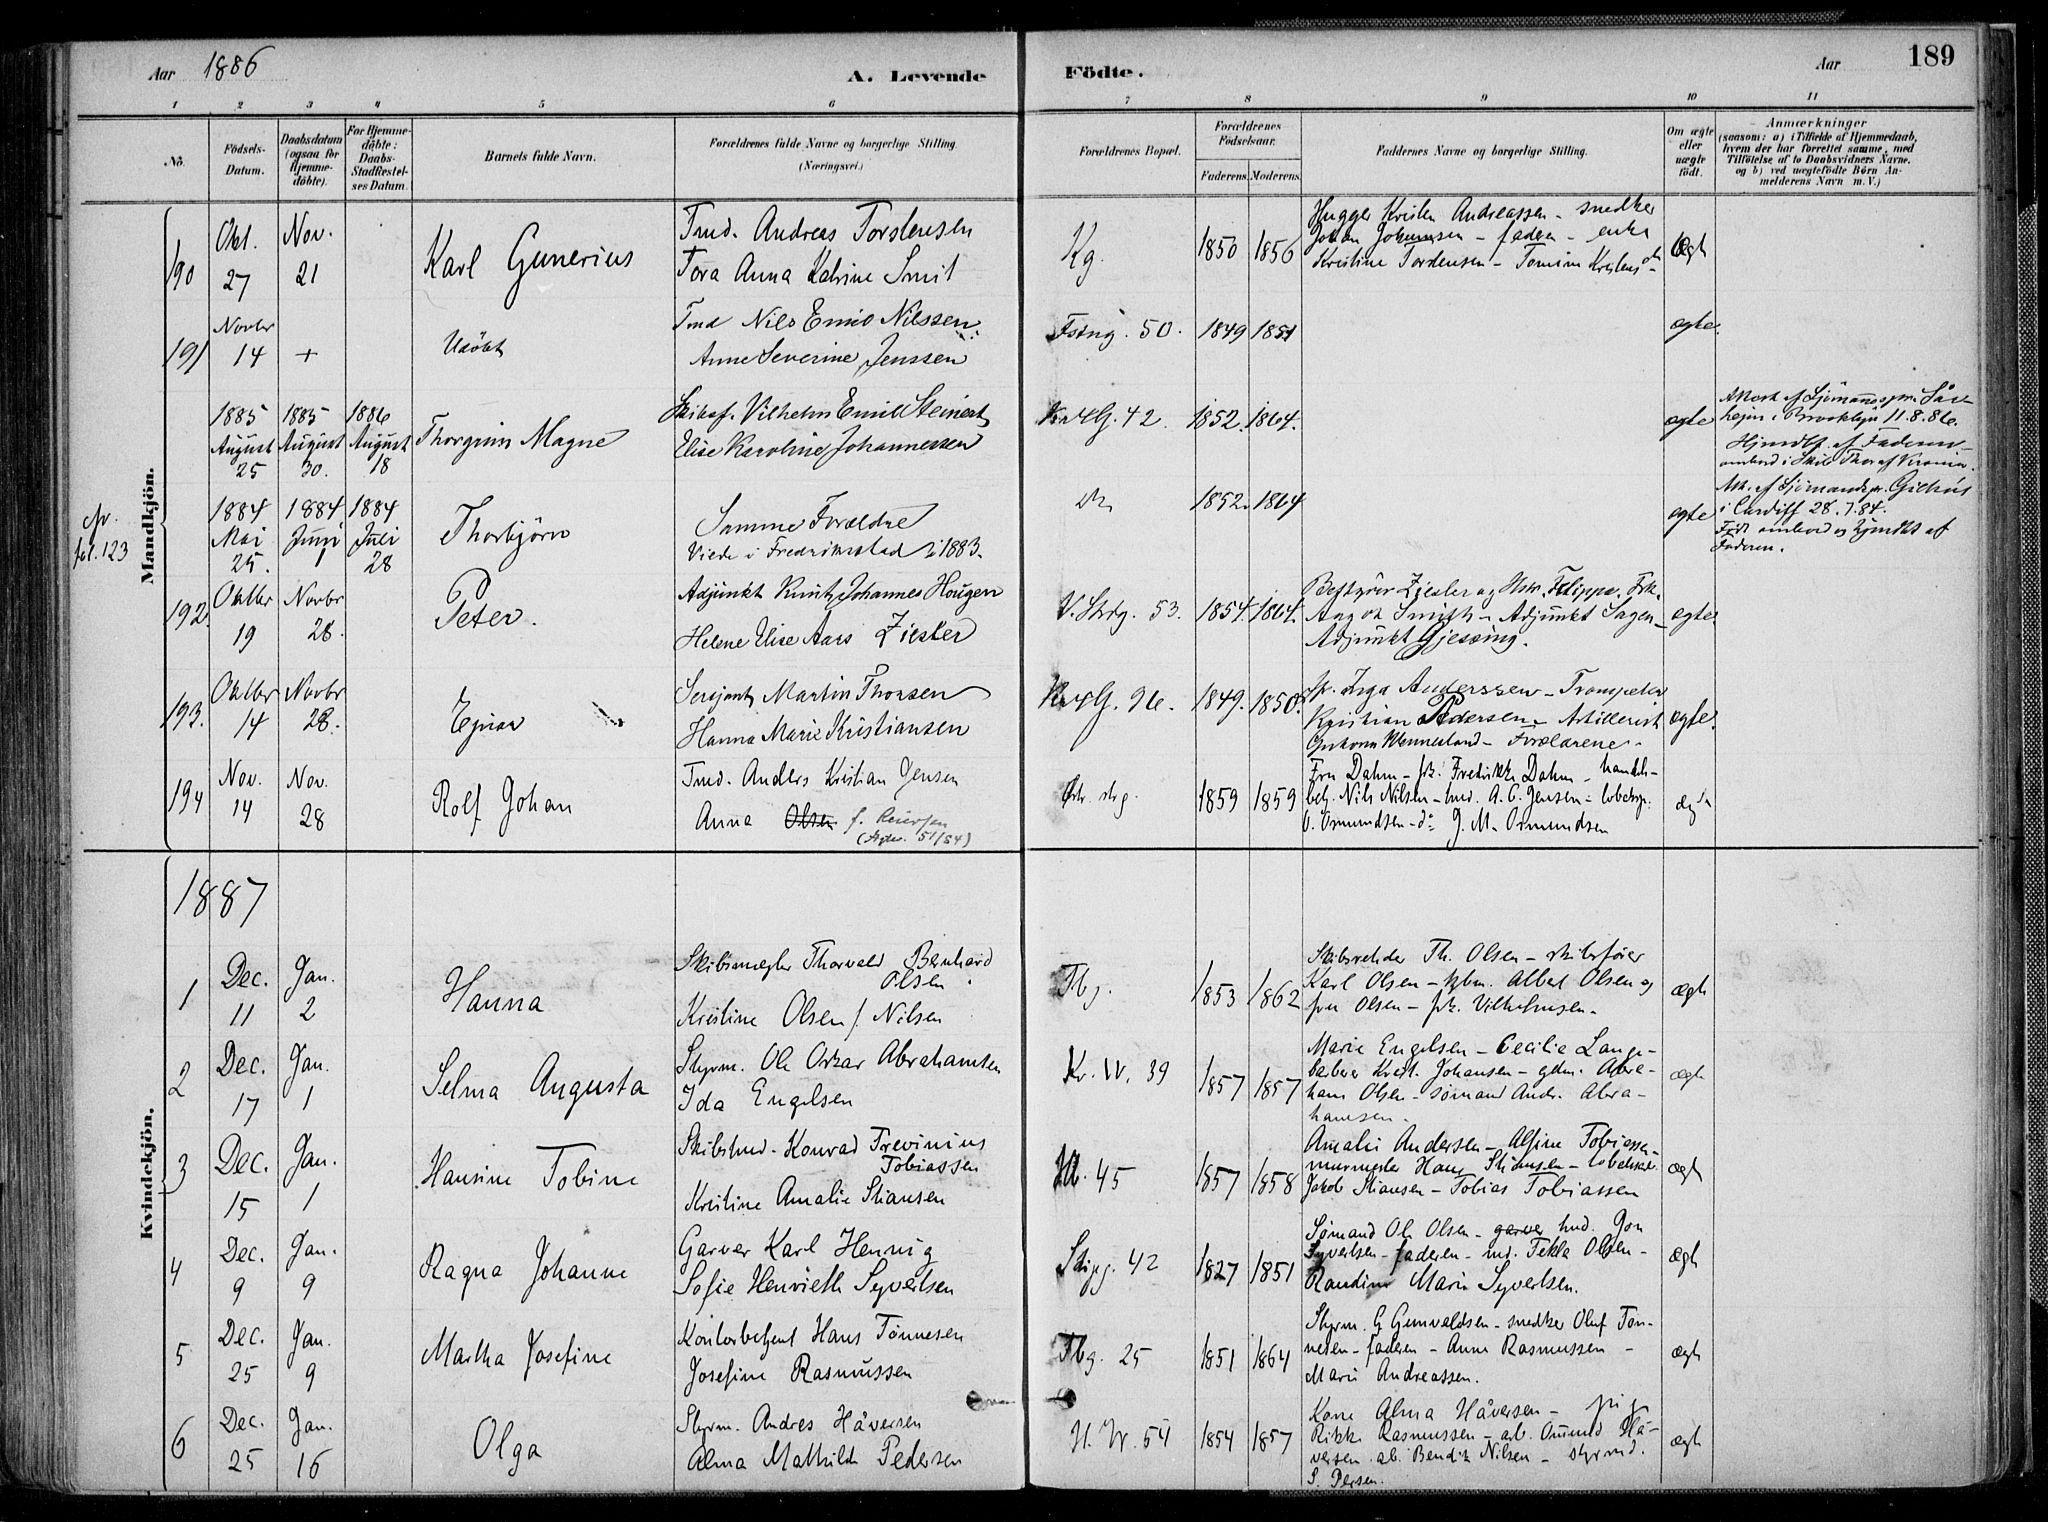 Aar 1886
A. Levende
Födte.
Aar
189
1 2 3 4 5 6 7 8 9 10 11
Nö.
Födsels-Datum.
Daabsdatum (ogsaa for Hjemmedöbte).
For Hjemmedöbte: Daabs-Stadfestelses Datum.
Barnets fulde Navn.
Forældrenes fulde Navne og borgerlige Stilling. (Næringsvei.)
Forældrenes Bopæl.
Forældrenes Födselsaar.
Faderens. Moderens.
Faddernes Navne og borgerlige Stilling.
Om ægte eller uægte födt.
Anmærkninger
(saasom: a) i Tilfælde af Hjemmedaab, hvem der har forrettet samme, med Tilföielse af to Daabsvidners Navne. og b) ved uægtefödte Börn Anmelderens Navn m. V.)
Mandkjön.
190 Okt. 27 Nov. 21 Karl Gunerius
Tmd. Andreas Torstensen
Tora Anna Katrine Smit
Kg. 1850 1856
Hugger Kristen Andreassen - snedker
Johan Johannsen - faderen - enke
Kristine Tordensen - Tomine Kristens
ægt
191 Novbr 14 + Udöbt
Tmd Nils Emio Nilssen
Anne Severine Jenssen
Fstng. 50. 1849 1851 ægte.
1885 August 25 1885 August 30. 1886 August 18
Thorgrim Magne
Skibsf. Vilhelm Emil Steinert
Elise Karoline Johannessen
42. 1852. 1864. ægte
Attest af Sjömandspr.
i Brooklyn 11.8.86.
Hjmdbt. af Faderen
ombord i Skib Thor af
cfr. fol. 123
1884 Mai 25. 1884 Juni 1 1884 Juli 28
Thorbjörn
Samme Forældre
Viede i Fredrikstad i 1883.
do 1852. 1864 ægte
Att. af Sjömandspr.
i Cardiff 28.7.84.
Födt ombord og hjmdbt af
Faderen.
192. Oktbr 19 Novbr 28. Peter.
Adjunkt Knut Johannes Hougen
Helene Elise Aars Ziesler
V. Strdg. 53. 1854. 1864.
Bestyrer Ziesler og Hstr. Filippa. Frk.
Smith - Adjunkt Sagen -
Adjunkt Gjessing.
ægte
193. Oktbr 14 Novbr 28. Ejnar
Sersjant Martin Thorsen
Hanna Marie Kristiansen
96. 1849. 1850.
Fr. Inga Anderssen - Trompeter
Kristian Pedersen - Artillerist
Wennesland - Forældrene -
ægte.
194 Nov. 14 Nov. 28 Rolf Johan
Tmd. Anders Kristian Jensen
Anna Olsen f. Reiersen
51/54)
Østr. strg. 1859 1859
Fru Dahm - frk. Fredrikke Dahm - handels-
betj. Nils Nilsen - tmd. A. C. Jensen - tobaksp.
O. Ormundsen - do G. M. Ormundsen
ægte
1887
Kvindekjön.
1 Dec. 11 Jan. 2 Hanna
Skibsmægler Thorvald Bernhard
Olsen
Kristine Olsen f. Nilsen
Tbg. 1853 1862
Skibsreder Th. Olsen - skibsförer
Karl Olsen - kjbm. Albert Olsen og
fru Olsen - frk. Vilhelmsen -
ægte
2 Dec. 17 Jan. 1 Selma Augusta
Styrm. Ole Oskar Abrahamsen
Ida Engelsen
Kr. W. 39 1857 1857
Marie Engelsen - Cecilie Lange -
barber Krist. Johansen - gdm. Abra-
ham Olsen - sömand Andr. Abra-
hamsen.
ægte
3 Dec. 15 Jan. 1 Hansine Tobine
Skibstmd. Konrad Frevinius
Tobiassen
Kristine Amalie Stiansen
45 1857 1858
Amalie Andersen - Alfine Tobiassen -
murmester Hans Stiansen -
Jakob Stiansen - Tobias Tobiassen
ægte
4 Dec. 9 Jan. 9 Ragna Johanne
Garver Karl Hennig
Sofie Henriette Syvertsen
Skipg. 42 1827 1851
Sömand Ole Olsen - garver tmd. Jon
Syvertsen - faderen - md. Tekla Olsen -
Randine Marie Syvertsen.
ægte
5 Dec. 25 Jan. 9 Martha Josefine
Kontorbetjent Hans Tönnesen
Josefine Rasmussen
Tbg. 25 1851 1864
Styrm. G Gunvaldsen - snedker Oluf Tön-
nesen - faderen - Anne Rasmussen -
Marie Andreassen.
ægte
6 Dec. 25 Jan. 16 Olga
Styrm. Andres Håversen
Alma Mathilde Pedersen
H. W. 54 1854 1857
Kone Alma Håversen - pig
Rikke Rasmussen - arb. Omund Hå-
versen arb. Bendik Nilsen - styrmd.
S. Persen.
ægte